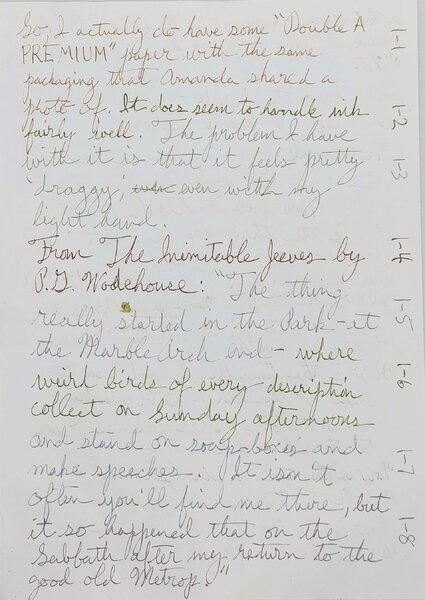 So, I actually do have some "Double A
PREMIUM" paper with the same
packaging that Amanda shared a
photo of. It does seem to handle ink
fairly well. The problem I have
with it is that it feels pretty
'draggy,' even even with my
light hand.
From The Inimitable Jeeves by
P.G. Wodehouse: "The thing
really started in the Park - at
the Marble Arch end - where
weird birds of every description
collect on Sunday afternoons
and stand on soap-boxes and
make speeches. It isn't
often you'll find me there, but
it so happened that on the
Sabbath after my return to the
good old Metrop."
1-1
1-2
1-3
1-4
1-5
1-6
1-7
1-8